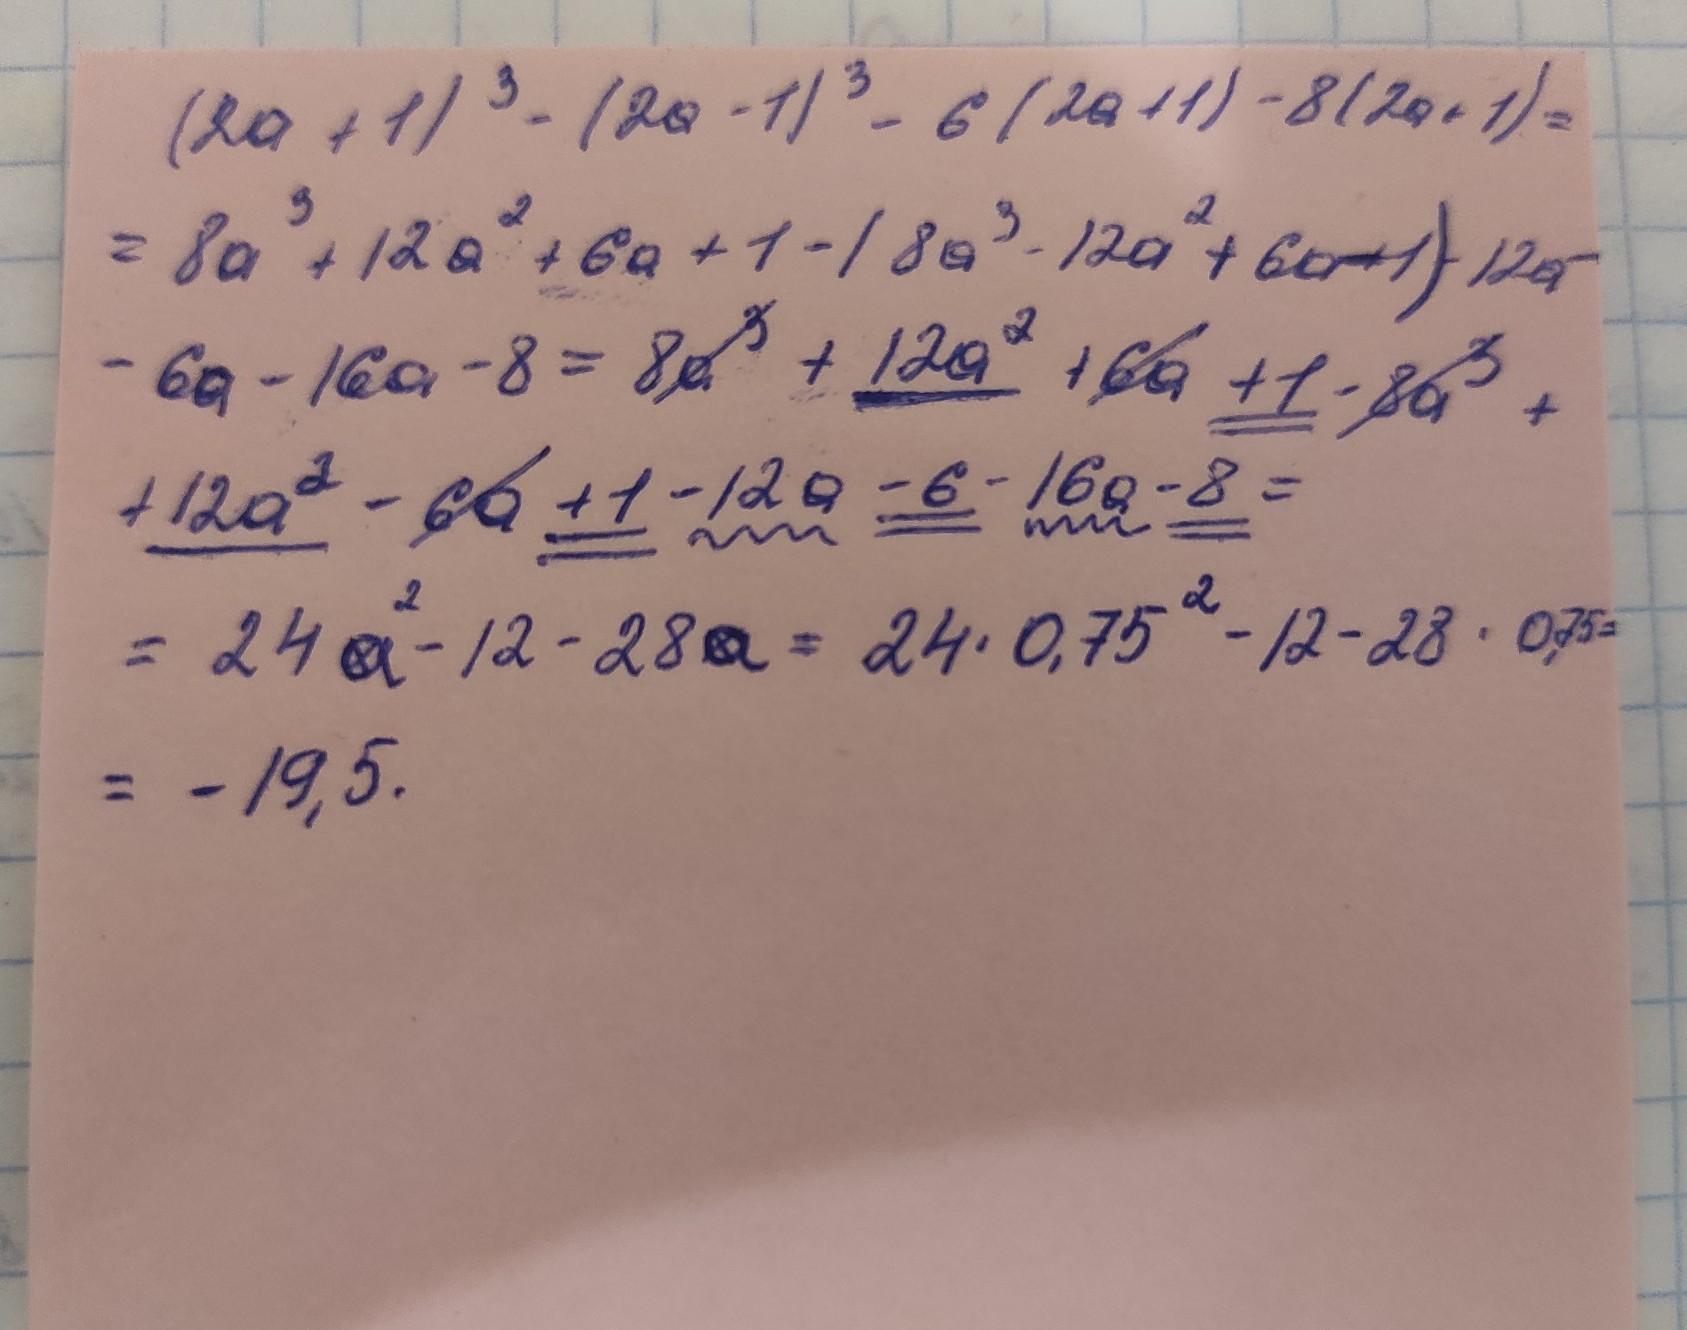 (2a + 1)³ - (2a - 1)³ - 6(2a+1) - 8(2a+1) =
= 8a³ + 12a² + 6a + 1 - (8a³ - 12a² + 6a - 1) - 12a -
- 6a - 16a - 8 = 8a³ + 12a² + 6a + 1 - 8a³ +
+ 12a² - 6a + 1 - 12a - 6 - 16a - 8 =
= 24a² - 12 - 28a = 24 · 0,75² - 12 - 28 · 0,75 =
= - 19,5.